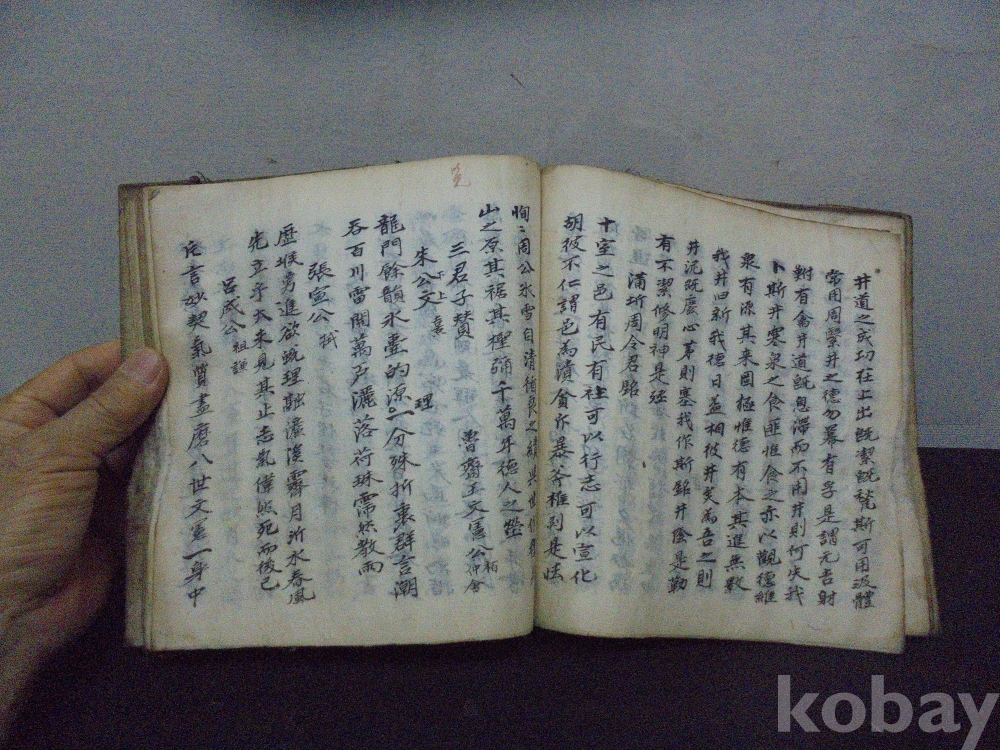 井道之成功在上出旣潔旣甃斯可用汲體
常用周繫井之德勿幕有孚是謂元吉射
對有禽井道旣息滯而不用井則何失我
卜斯井寒泉之食匪惟食之亦以觀德維
泉有源其來罔極惟德有本其進無斁
我井旧新我德日益相彼井矣爲吾之則
井泥旣廢心茅則塞我作斯銘井陰是勒
有不潔修明神是殛
蒲圻周令君銘
十室之邑有民有社可以行志可以宣化
胡彼不仁謂邑爲瀆貪尔暴斧椎剥是怯
恂〻周公氷雪自清循良之績
山之原其椐其檉彌千萬年德人之塋
三君子賛 魯齋王文憲公柏仲會
朱公文 下上 熹 理
龍門餘韻氷壷的源一分殊折衷群言潮
呑百川雷開萬戸灑落荷珠霈然敎雨
張宣公 栻
歷堠勇進欲旣理融灑灑霽月沂水春風
先立乎大未見其止志氣偉然死而後已
呂成公 祖謙
片言妙契氣質盡磨八世文憲一身中
kobay